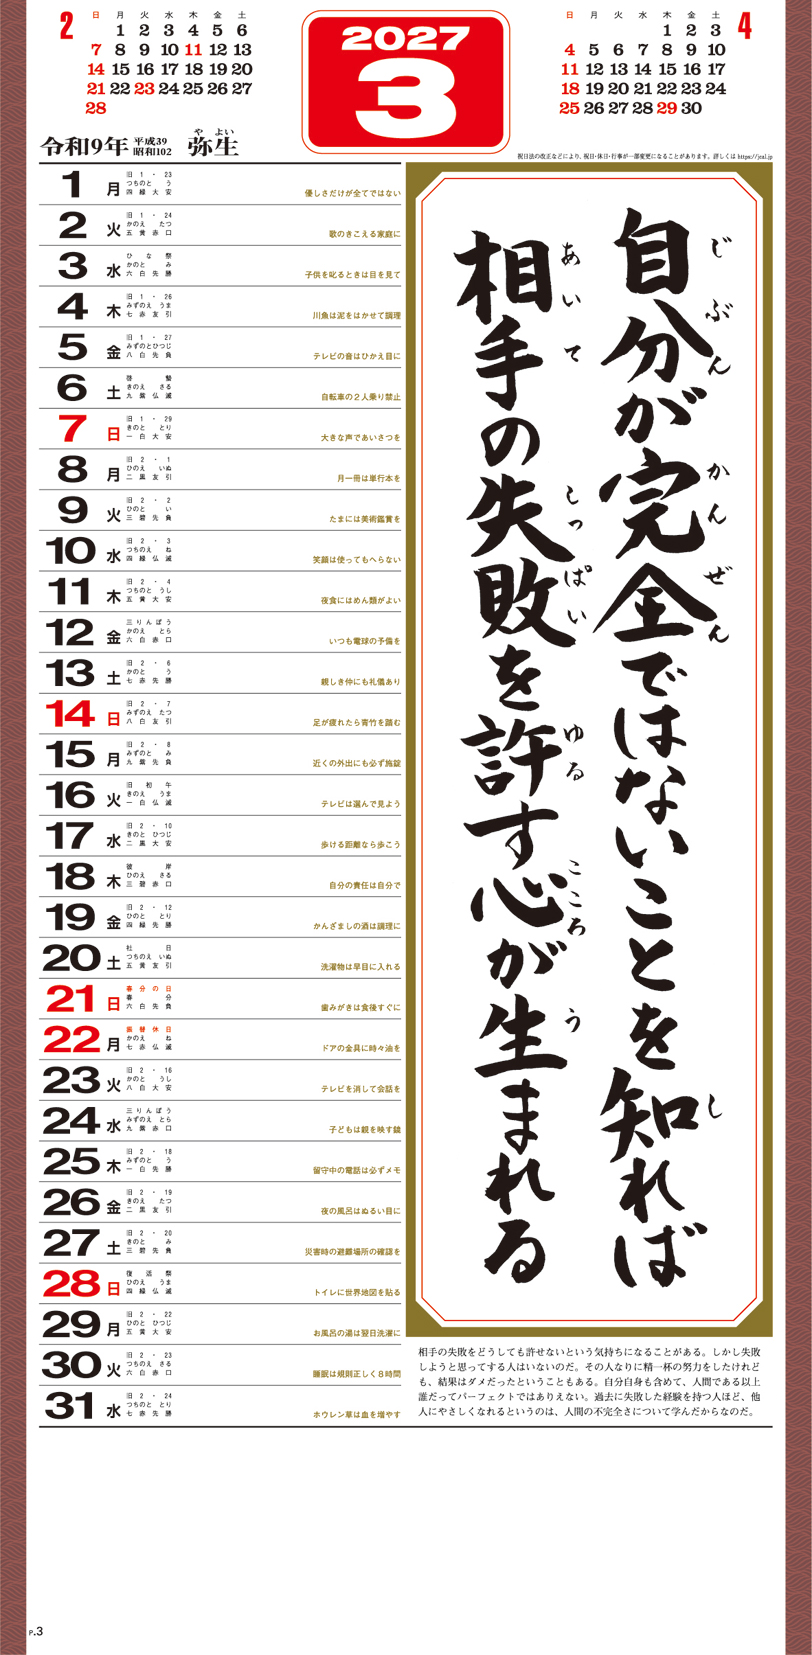 2
日 月 火 水 木 金 土
1 2 3 4 5 6
7 8 9 10 11 12 13
14 15 16 17 18 19 20
21 22 23 24 25 26 27
28
2027
3
4
日 月 火 水 木 金 土
1 2 3
4 5 6 7 8 9 10
11 12 13 14 15 16 17
18 19 20 21 22 23 24
25 26 27 28 29 30
令和9年 平成39 昭和102 弥生 やよい
祝日法の改正などにより、祝日・休日・行事が一部変更になることがあります。詳しくは https://jcal.jp
1 月 旧1・23 つちのと う 四緑大安 優しさだけが全てではない
2 火 旧1・24 かのえ たつ 五黄赤口 歌のきこえる家庭に
3 水 ひな祭 かのと み 六白先勝 子供を叱るときは目を見て
4 木 旧1・26 みずのえ うま 七赤友引 川魚は泥をはかせて調理
5 金 旧1・27 みずのとひつじ 八白先負 テレビの音はひかえ目に
6 土 啓蟄 きのえ さる 九紫仏滅 自転車の2人乗り禁止
7 日 旧1・29 きのと とり 一白大安 大きな声であいさつを
8 月 旧2・1 ひのえ いぬ 二黒友引 月一冊は単行本を
9 火 旧2・2 ひのと い 三碧先負 たまには美術鑑賞を
10 水 旧2・3 つちのえ ね 四緑仏滅 笑顔は使ってもへらない
11 木 旧2・4 つちのと うし 五黄大安 夜食にはめん類がよい
12 金 三りんぼう かのえ とら 六白赤口 いつも電球の予備を
13 土 旧2・6 かのと う 七赤先勝 親しき仲にも礼儀あり
14 日 旧2・7 みずのえ たつ 八白友引 足が疲れたら青竹を踏む
15 月 旧2・8 みずのと み 九紫先負 近くの外出にも必ず施錠
16 火 旧初午 きのえ うま 一白仏滅 テレビは選んで見よう
17 水 旧2・10 きのと ひつじ 二黒大安 歩ける距離なら歩こう
18 木 彼岸 ひのえ さる 三碧赤口 自分の責任は自分で
19 金 旧2・12 ひのと とり 四緑先勝 かんざましの酒は調理に
20 土 社日 つちのえ いぬ 五黄友引 洗濯物は早目に入れる
21 日 春分の日 春分 六白先負 歯みがきは食後すぐに
22 月 振替休日 かのえ ね 七赤仏滅 ドアの金具に時々油を
23 火 旧2・16 かのと うし 八白大安 テレビを消して会話を
24 水 三りんぼう みずのえ とら 九紫赤口 子どもは親を映す鏡
25 木 旧2・18 みずのと う 一白先勝 留守中の電話は必ずメモ
26 金 旧2・19 きのえ たつ 二黒友引 夜の風呂はぬるい目に
27 土 旧2・20 きのと み 三碧先負 災害時の避難場所の確認を
28 日 復活祭 ひのえ うま 四緑仏滅 トイレに世界地図を貼る
29 月 旧2・22 ひのと ひつじ 五黄大安 お風呂の湯は翌日洗濯に
30 火 旧2・23 つちのえ さる 六白赤口 睡眠は規則正しく8時間
31 水 旧2・24 つちのと とり 七赤先勝 ホウレン草は血を増やす
自分が完全ではないことを知れば
じぶん かんぜん し
相手の失敗を許す心が生まれる
あいて しっぱい ゆる こころ う
相手の失敗をどうしても許せないという気持ちになることがある。しかし失敗
しようと思ってする人はいないのだ。その人なりに精一杯の努力をしたけれど
も、結果はダメだったということもある。自分自身も含めて、人間である以上
誰だってパーフェクトではありえない。過去に失敗した経験を持つ人ほど、他
人にやさしくなれるというのは、人間の不完全さについて学んだからなのだ。
P.3